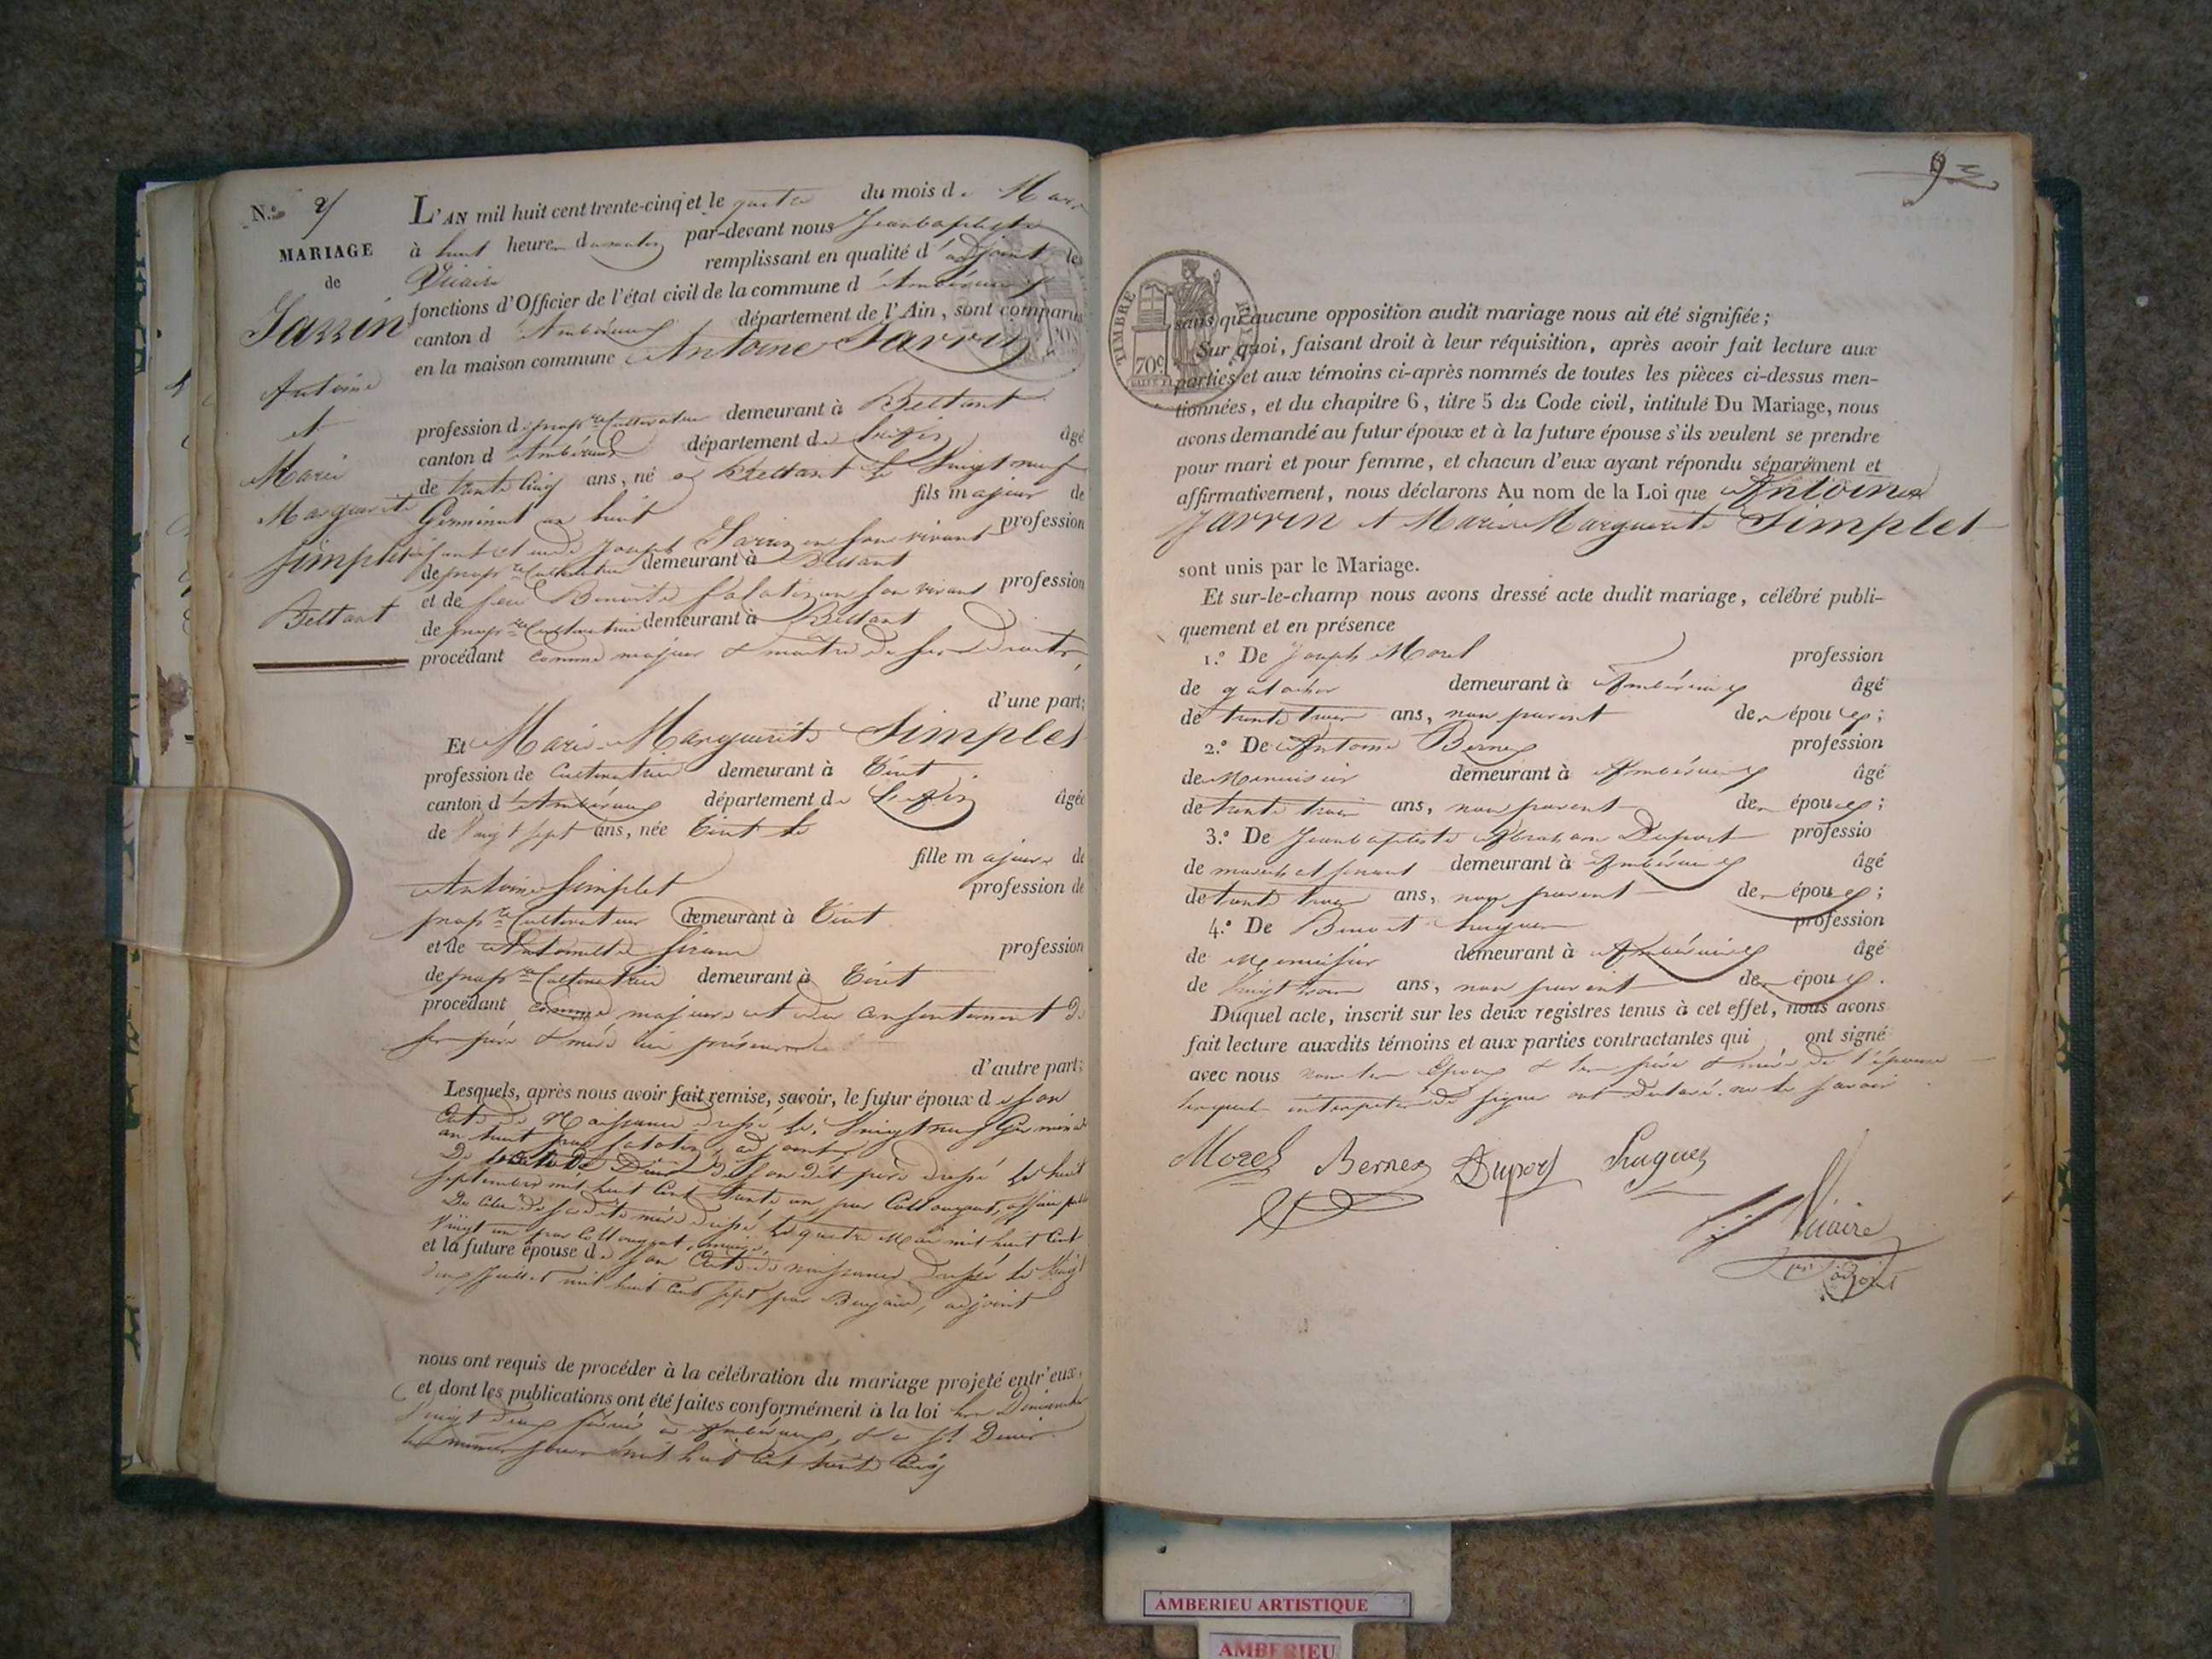 N.º 7
MARIAGE
de
Jarrin
Antoine
et
Marie
Marguerite
Simplet
Bettant
L'AN mil huit cent trente-cinq et le quatre du mois de Mars
à huit heures du matin par-devant nous Jeanbaptiste
Viaire remplissant en qualité d'adjoint les
fonctions d'Officier de l'état civil de la commune d'Ambérieux
canton d'Ambérieux département de l'Ain, sont comparus
en la maison commune Antoine Jarrin
profession de prop.re Cultivateur demeurant à Bettant
canton d'Ambérieux département de l'Ain âgé
de trente cinq ans, né à Bettant le Vingt neuf
Germinal an huit fils majeur de
Joseph Jarrin en son vivant profession
de prop.re Cultivateur demeurant à Bettant
et de feue Benoite Salatin en son vivant profession
de prop.re Cultivatrice demeurant à Bettant
procédant comme majeur & maître de ses Droits
d'une part;
Et Marie Marguerite Simplet
profession de Cultivatrice demeurant à Tiret
canton d'Ambérieux département de l'Ain âgée
de Vingt sept ans, née Tiret le
fille majeure de
Antoine Simplet profession de
prop.re Cultivateur demeurant à Tiret
et de Antoinette profession
de prop.re Cultivatrice demeurant à Tiret
procédant comme majeure et du consentement de
ses père & mère ici présents
d'autre part;
Lesquels, après nous avoir fait remise, savoir, le futur époux de son
acte de Naissance dressé le Vingt neuf Germinal
an huit par Salatin, adjoint
De de son dit père dressé le huit
septembre mil huit Cent trente un, par Collonguet, officier public
De celui de sa dite mère dressé le quatre Mai mil huit Cent
Vingt un par Collonguet, maire,
et la future épouse de son acte de naissance dressé le Vingt
deux Juillet mil huit Cent sept par adjoint
nous ont requis de procéder à la célébration du mariage projeté entr'eux,
et dont les publications ont été faites conformément à la loi les Dimanches
Vingt deux février à Ambérieux, & à St Denis
les mêmes jours mil huit Cent trente Cinq
9
TIMBRE ROYAL
70c
sans qu'aucune opposition audit mariage nous ait été signifiée;
Sur quoi, faisant droit à leur réquisition, après avoir fait lecture aux
parties et aux témoins ci-après nommés de toutes les pièces ci-dessus men-
tionnées, et du chapitre 6, titre 5 du Code civil, intitulé Du Mariage, nous
avons demandé au futur époux et à la future épouse s'ils veulent se prendre
pour mari et pour femme, et chacun d'eux ayant répondu séparément et
affirmativement, nous déclarons Au nom de la Loi que Antoine
Jarrin et Marie Marguerite Simplet
sont unis par le Mariage.
Et sur-le-champ nous avons dressé acte dudit mariage, célébré publi-
quement et en présence
1.º De Joseph Morel profession
de galochier demeurant à Ambérieux âgé
de trente trois ans, non parent des époux;
2.º De Antoine Bernex profession
de Menuisier demeurant à Ambérieux âgé
de trente trois ans, non parent des époux;
3.º De Jeanbaptiste Abraham Duport professio
de marechal ferrant demeurant à Ambérieux âgé
de trente trois ans, non parent des époux;
4.º De Benoit Hugues profession
de Menuisier demeurant à Ambérieux âgé
de Vingt trois ans, non parent des époux.
Duquel acte, inscrit sur les deux registres tenus à cet effet, nous avons
fait lecture auxdits témoins et aux parties contractantes qui ont signé
avec nous non les Epoux & les père & mère de l'épouse
lesquels interpelés de signer ont declaré ne le savoir
Morel Bernex Duport Hugues
Viaire
adjoint
AMBERIEU ARTISTIQUE
AMBERIEU